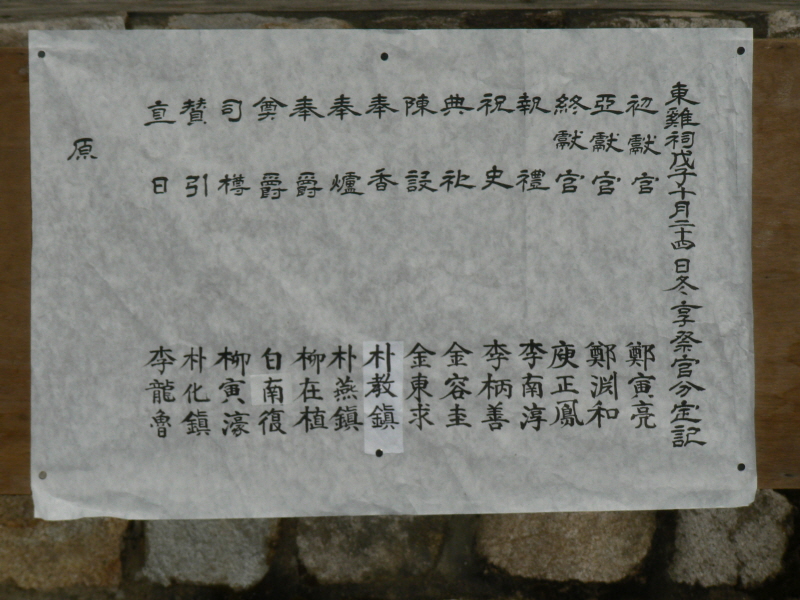 東雞祠戊子十月二十四日冬享祭官分定記
初獻官 鄭寅亮
亞獻官 鄭淵和
終獻官 庾正鳳
執禮 李南淳
祝史 李柄善
典祀 金容圭
陳設 金東求
奉香 朴敎鎭
奉爐 朴燕鎭
奉爵 柳在植
奠爵 白南復
司樽 柳寅濠
贊引 朴化鎭
直日 李龍魯
原